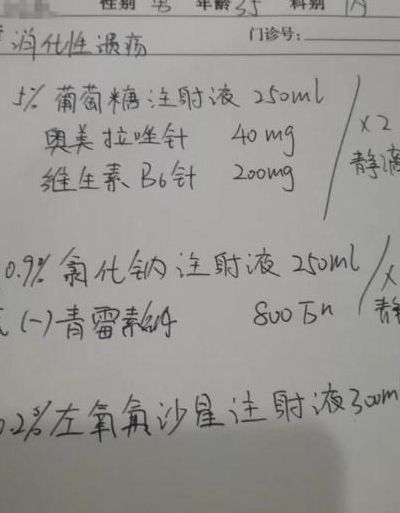 性别 男 年龄 35 科别 内
消化性溃疡 门诊号:
5% 葡萄糖注射液 250ml
奥美拉唑针 40mg
维生素B6针 200mg
/ ×2
静滴
0.9% 氯化钠注射液 250ml / ×
(-) 青霉素钠 800万u 静
.2% 左氧氟沙星注射液 300m